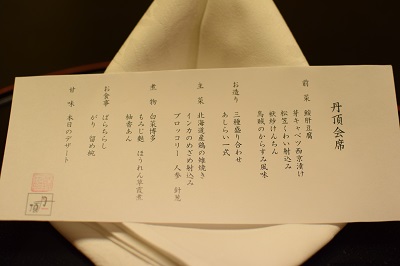 丹頂会席
前菜 鮟肝豆腐
芽キャベツ西京漬け
松笠くわい射込み
袱紗けんちん
烏賊のからすみ風味
お造り 三種盛り合わせ
あしらい一式
主菜 北海道産鶏の雉焼き
インカのめざめ射込み
ブロッコリー 人参 針葱
煮物 白菜博多
もみじ麩 ほうれん草霞煮
柚香あん
お食事 ばらちらし
がり 留め椀
甘味 本日のデザート